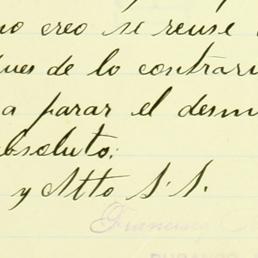 no creo se reuse
de lo contrari
a parar el desm
absoluto:
y Atto S. S.
Francisco
DURANGO